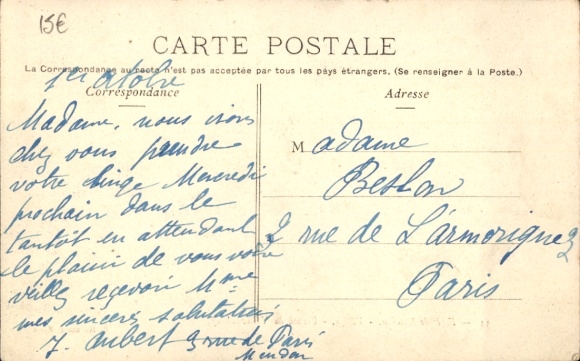 15€
CARTE POSTALE
La Correspondance au recto n'est pas acceptée par tous les pays étrangers. (Se renseigner à la Poste.)
1er octobre
Correspondance
Madame, nous irons
chez vous prendre
votre linge Mercredi
prochain dans le
tantôt en attendant
le plaisir de vous voir
veillez recevoir Mme
mes sincères salutations
J. Aubert 3 rue de Paris
Meudon
Adresse
Madame
2 rue de L'armorique 2
Paris